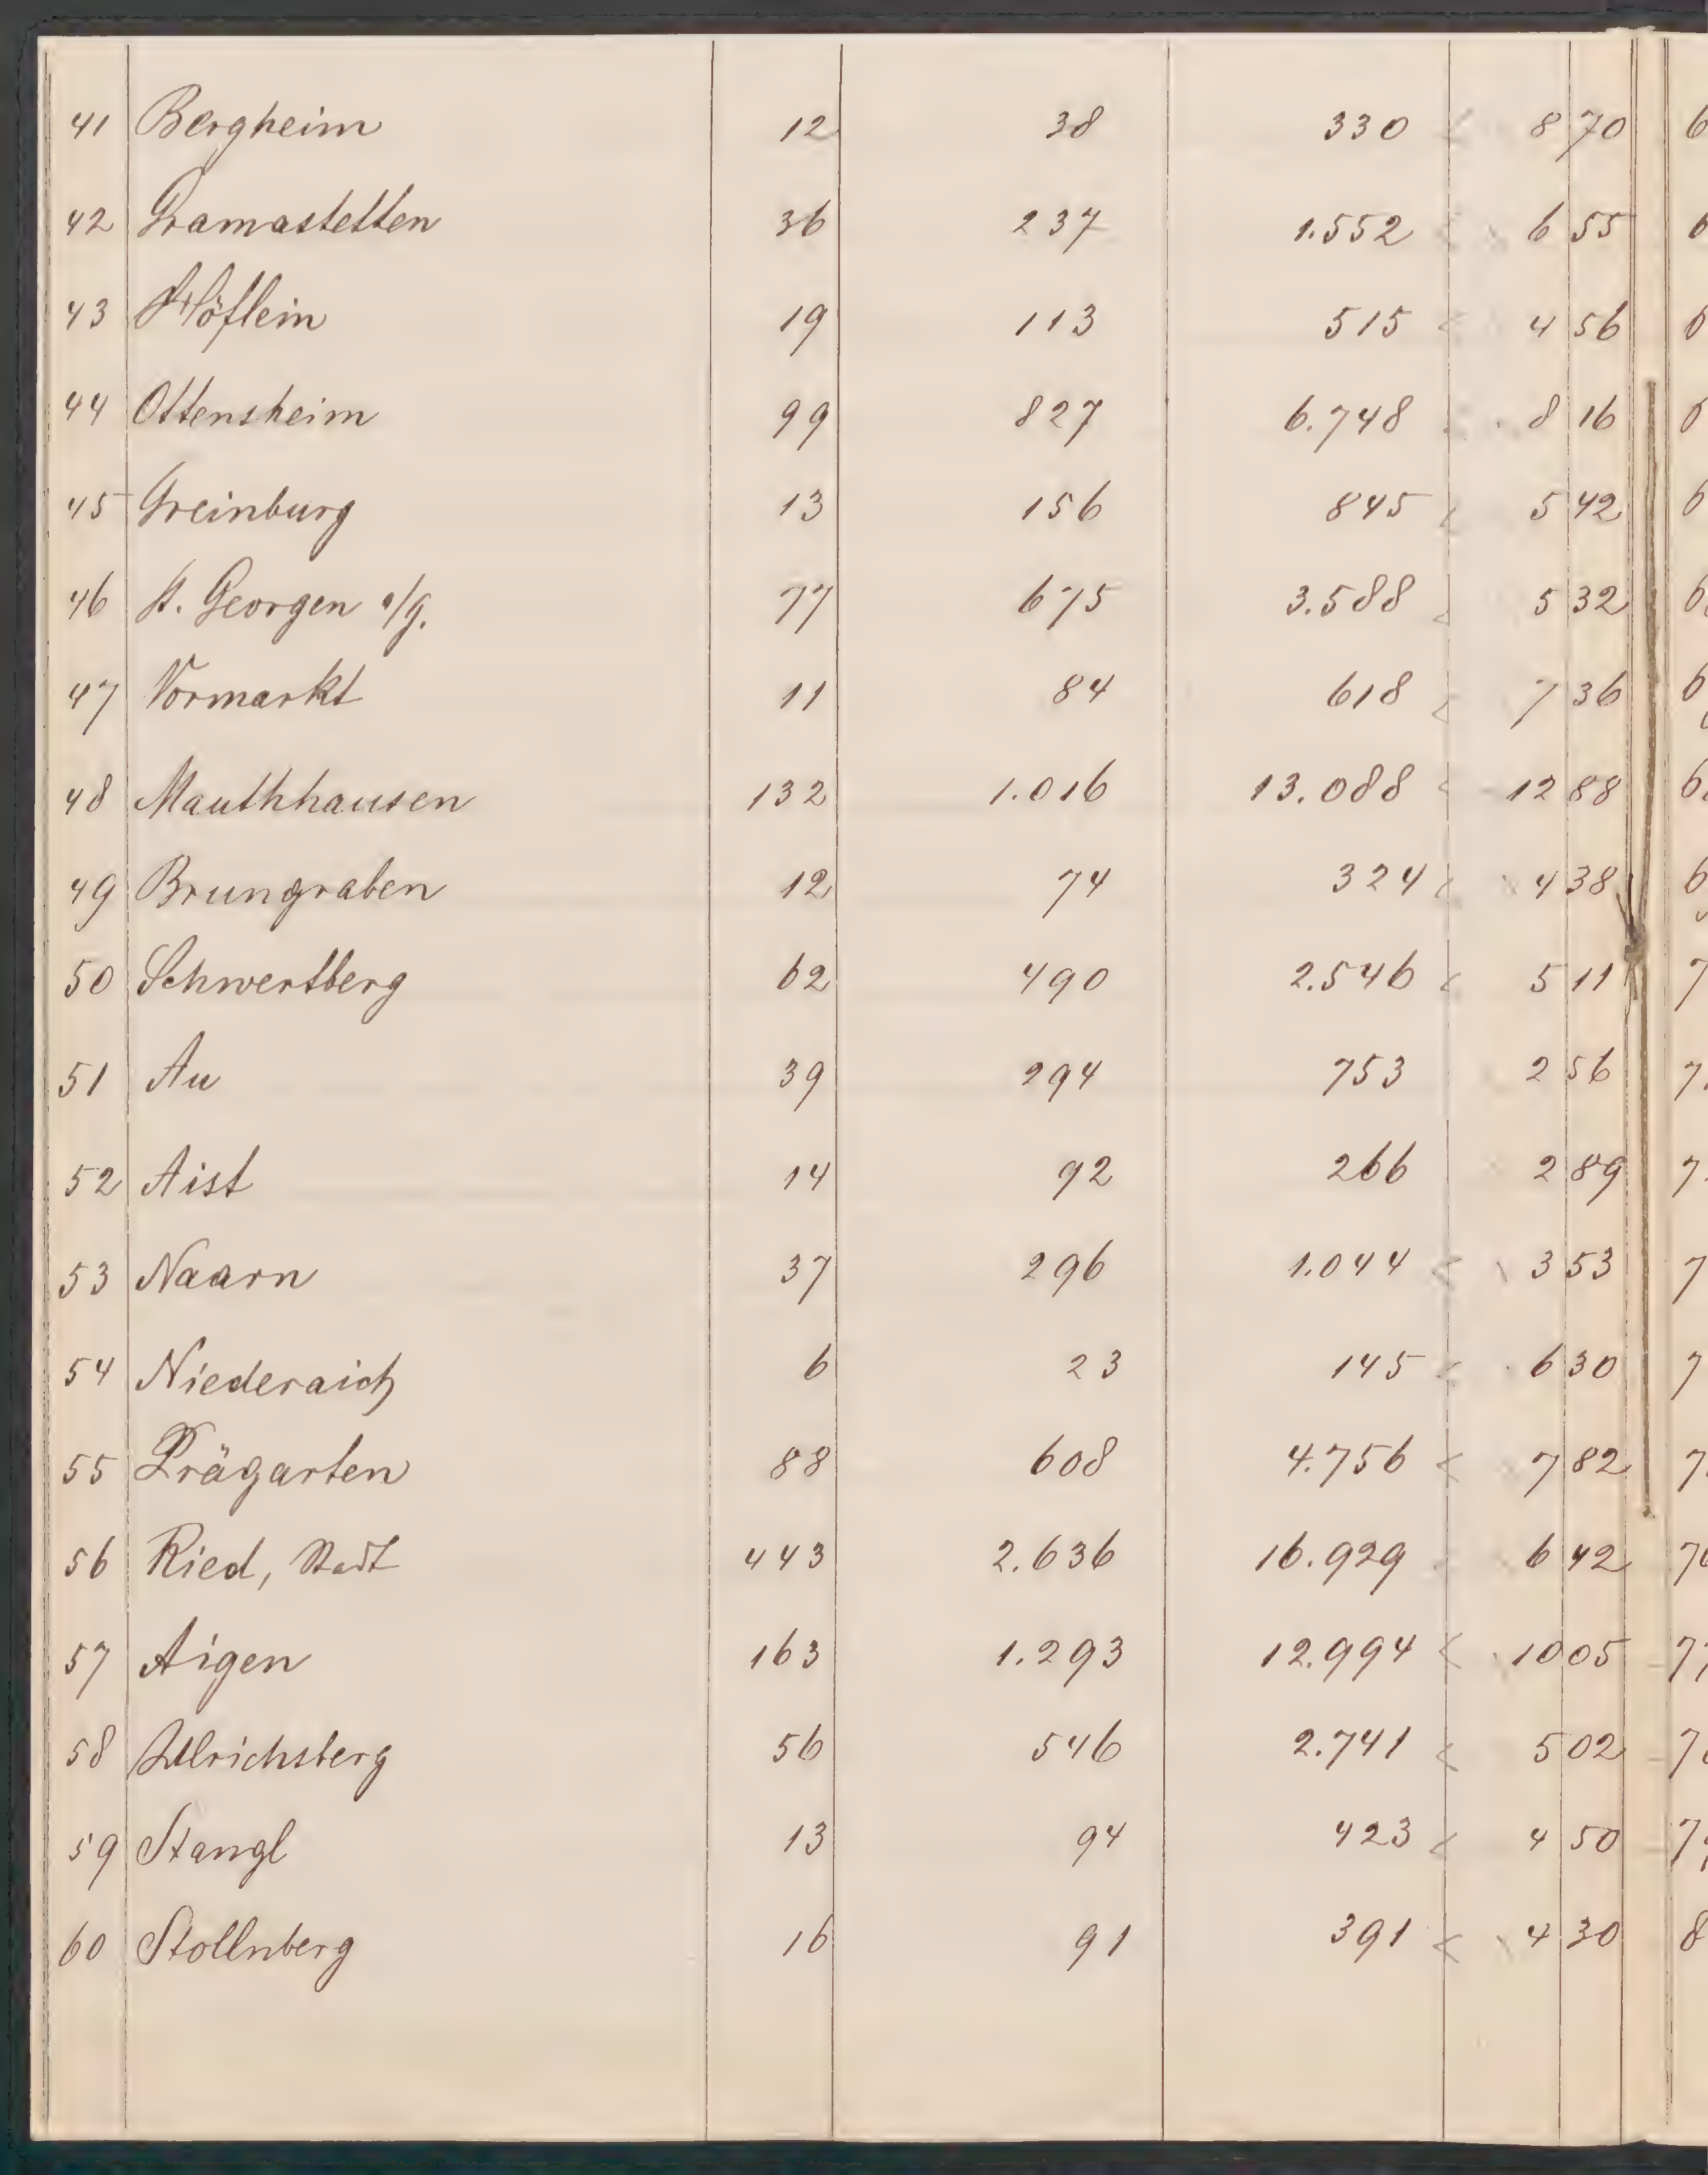 41 Bergheim 12 38 330 8 70
42 Gramastetten 36 237 1.552 6 55
43 Höflein 19 113 515 4 56
44 Ottensheim 99 827 6.748 8 16
45 Greinburg 13 156 845 5 42
46 St. Georgen a/g. 77 675 3.588 5 32
47 Vormarkt 11 84 618 7 36
48 Mauthhausen 132 1.016 13.088 12 88
49 Brungraben 12 74 324 4 38
50 Schwertberg 62 490 2.546 5 11
51 Au 39 294 753 2 56
52 Aist 14 92 266 2 89
53 Naarn 37 296 1.044 3 53
54 Niederaich 6 23 145 6 30
55 Prägarten 88 608 4.756 7 82
56 Ried, Stadt 443 2.636 16.929 6 42
57 Aigen 163 1.293 12.994 10 05
58 Ulrichsberg 56 546 2.741 5 02
59 Stangl 13 94 423 4 50
60 Stollnberg 16 91 391 4 30